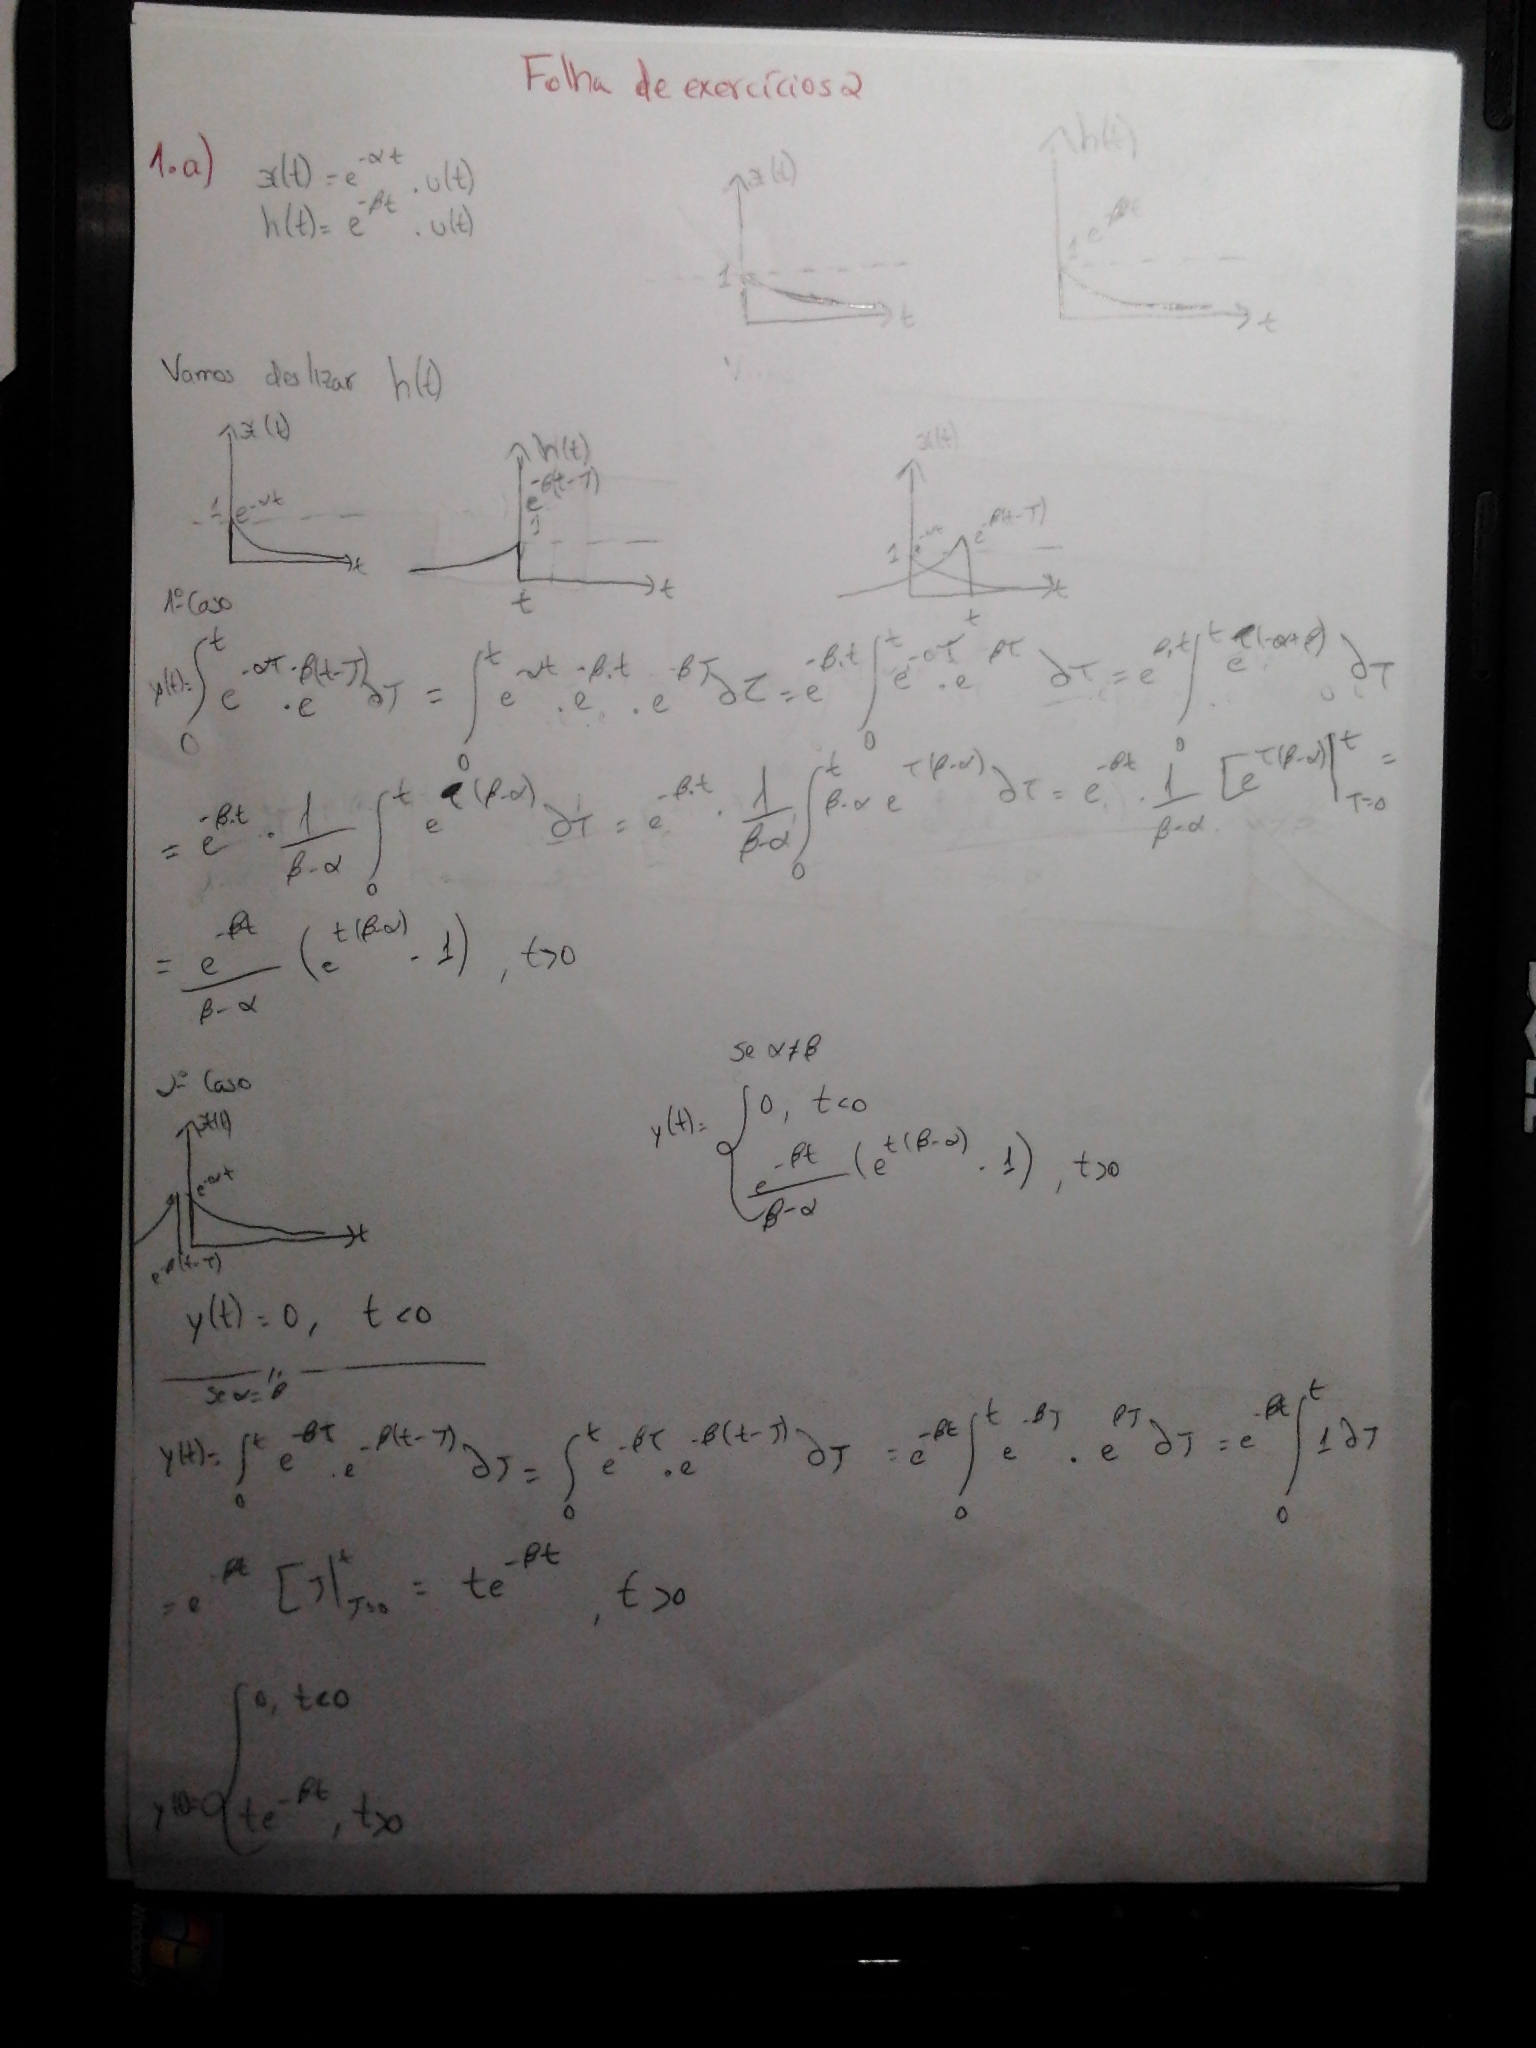 Folha de exercícios 2
1.a) x(t) = e^{-αt} . u(t)
h(t) = e^{-βt} . u(t)
x(t)
1
t
h(t)
1 e^{-βt}
t
Vamos deslizar h(t)
x(t)
1 e^{-αt}
t
h(t)
e^{-β(t-T)}
1
t
t
x(t)
1 e^{-αt} e^{-β(t-T)}
t
t
1º Caso
y(t) = ∫_0^t e^{-αT} . e^{-β(t-T)} ∂T = ∫_0^t e^{-αt} . e^{-β.t} . e^{-βT} ∂T = e^{-β.t} ∫_0^t e^{-αT} . e^{βT} ∂T = e^{β.t} ∫_0^t e^{T(-α+β)} ∂T
= e^{-β.t} . 1/(β-α) ∫_0^t e^{T(β-α)} ∂T = e^{-β.t} . 1/(β-α) ∫_0^t β-α e^{T(β-α)} ∂T = e^{-βt} . 1/(β-α) [e^{T(β-α)}|_{T=0}^t =
= e^{-βt}/(β-α) (e^{t(β-α)} - 1), t>0
2º Caso
x(t)
e^{-αt}
t
e^{-β(t-T)}
se α≠β
y(t) = { 0, t<0
e^{-βt}/(β-α) (e^{t(β-α)} - 1), t>0
y(t) = 0, t<0
se α=β
y(t) = ∫_0^t e^{-βT} . e^{-β(t-T)} ∂T = ∫_0^t e^{-βT} . e^{-β(t-T)} ∂T = e^{-βt} ∫_0^t e^{-βT} . e^{βT} ∂T = e^{-βt} ∫_0^t 1 ∂T
= e^{-βt} [T|_{T=0}^t = te^{-βt}, t>0
y(t) = { 0, t<0
te^{-βt}, t>0
Windows 7